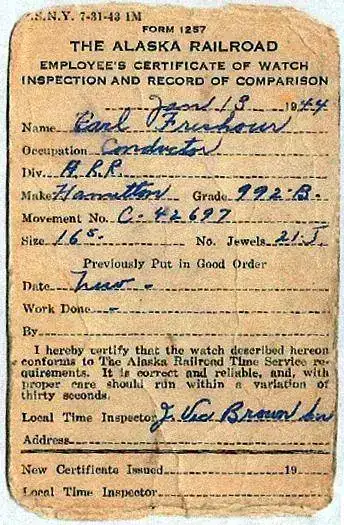 .S.N.Y. 7-31-43 1M
FORM 1257
THE ALASKA RAILROAD
EMPLOYEE'S CERTIFICATE OF WATCH
INSPECTION AND RECORD OF COMPARISON
Jan 13 1944
Name Earl
Occupation Conductor
Div. A.R.R.
Make Hamilton Grade 992-B.
Movement No. C-42697
Size 16s. No. Jewels 21J
Previously Put in Good Order
Date New -
Work Done -
By
I hereby certify that the watch described hereon
conforms to The Alaska Railroad Time Service re-
quirements. It is correct and reliable, and, with
proper care should run within a variation of
thirty seconds.
Local Time Inspector J. Vic Brown
Address
New Certificate Issued 19
Local Time Inspector